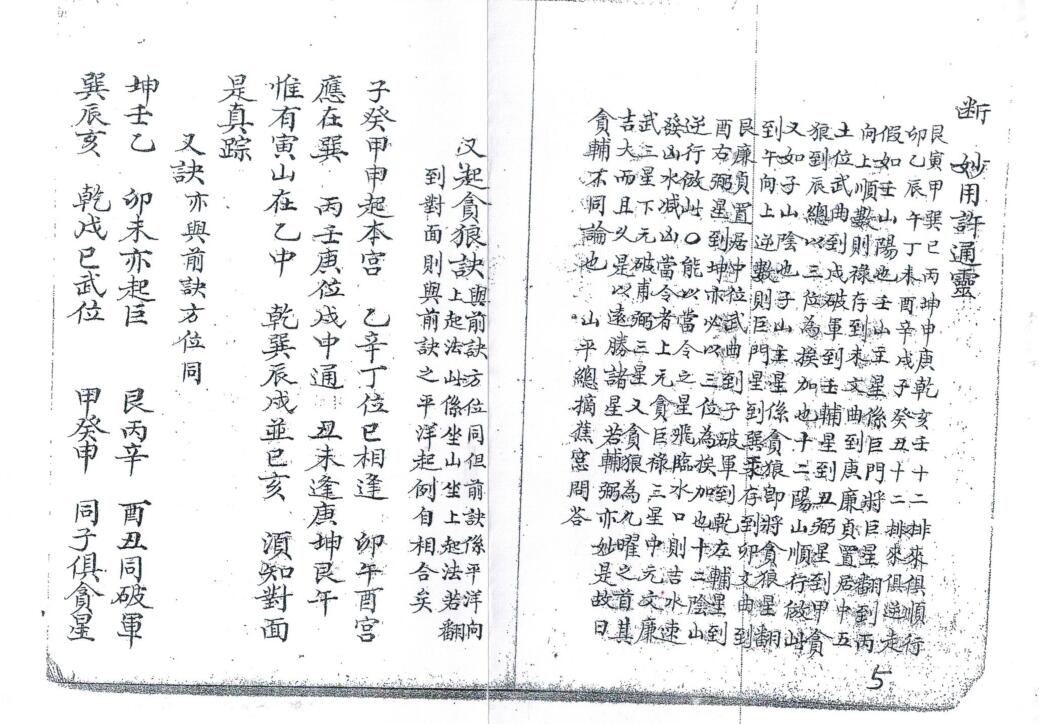 断
妙用許通靈
艮寅甲巽巳丙坤申庚乾亥壬十二排來俱順行
卯乙辰午丁未酉辛戌子癸丑十二排來俱逆走
假如壬山陽也壬山主星係巨門將巨星翻到丙
向上順數則祿存到未文曲到庚廉貞置居中五
土位武曲到戌破軍到壬輔星到丑弼星到甲貪
狼到辰總以三位為挨加也十二陽山順行倣此
又如子山陰也子山主星係貪狼即將貪狼星翻
到午向上逆數則巨門星到巽祿存到卯文曲到
艮廉貞置居中位武曲到子破軍到乾在輔星到
酉右弼星到坤亦以三位為挨加也十二陰山
逆行倣此〇能以當令之星飛臨水口則吉水速
發凶水减凶當令者上元貪巨祿三星中元文廉
武三星下元破甫弼三星又貪狼為九曜之首其
吉大而且乆是以遠勝諸星若輔弼亦妙是故曰
貪輔不同論也 山平總摘蕉窓問答
又起貪狼訣與前訣方位同但前訣係平洋向
上起法山係坐山坐上起法若翻
到對面則與前訣之平洋起例自相合矣
子癸甲申起本宮 乙辛丁位巳相逢 卯午酉宮
應在巽 丙壬庚位戌中通 丑未逢庚坤艮午
惟有寅山在乙中 乾巽辰戌並巳亥 湏知對面
是真踪
又訣亦與前訣方位同
坤壬乙 卯未亦起巨 艮丙辛 酉丑同破軍
巽辰亥 乾戌巳武位 甲癸申 同子俱貪星
5